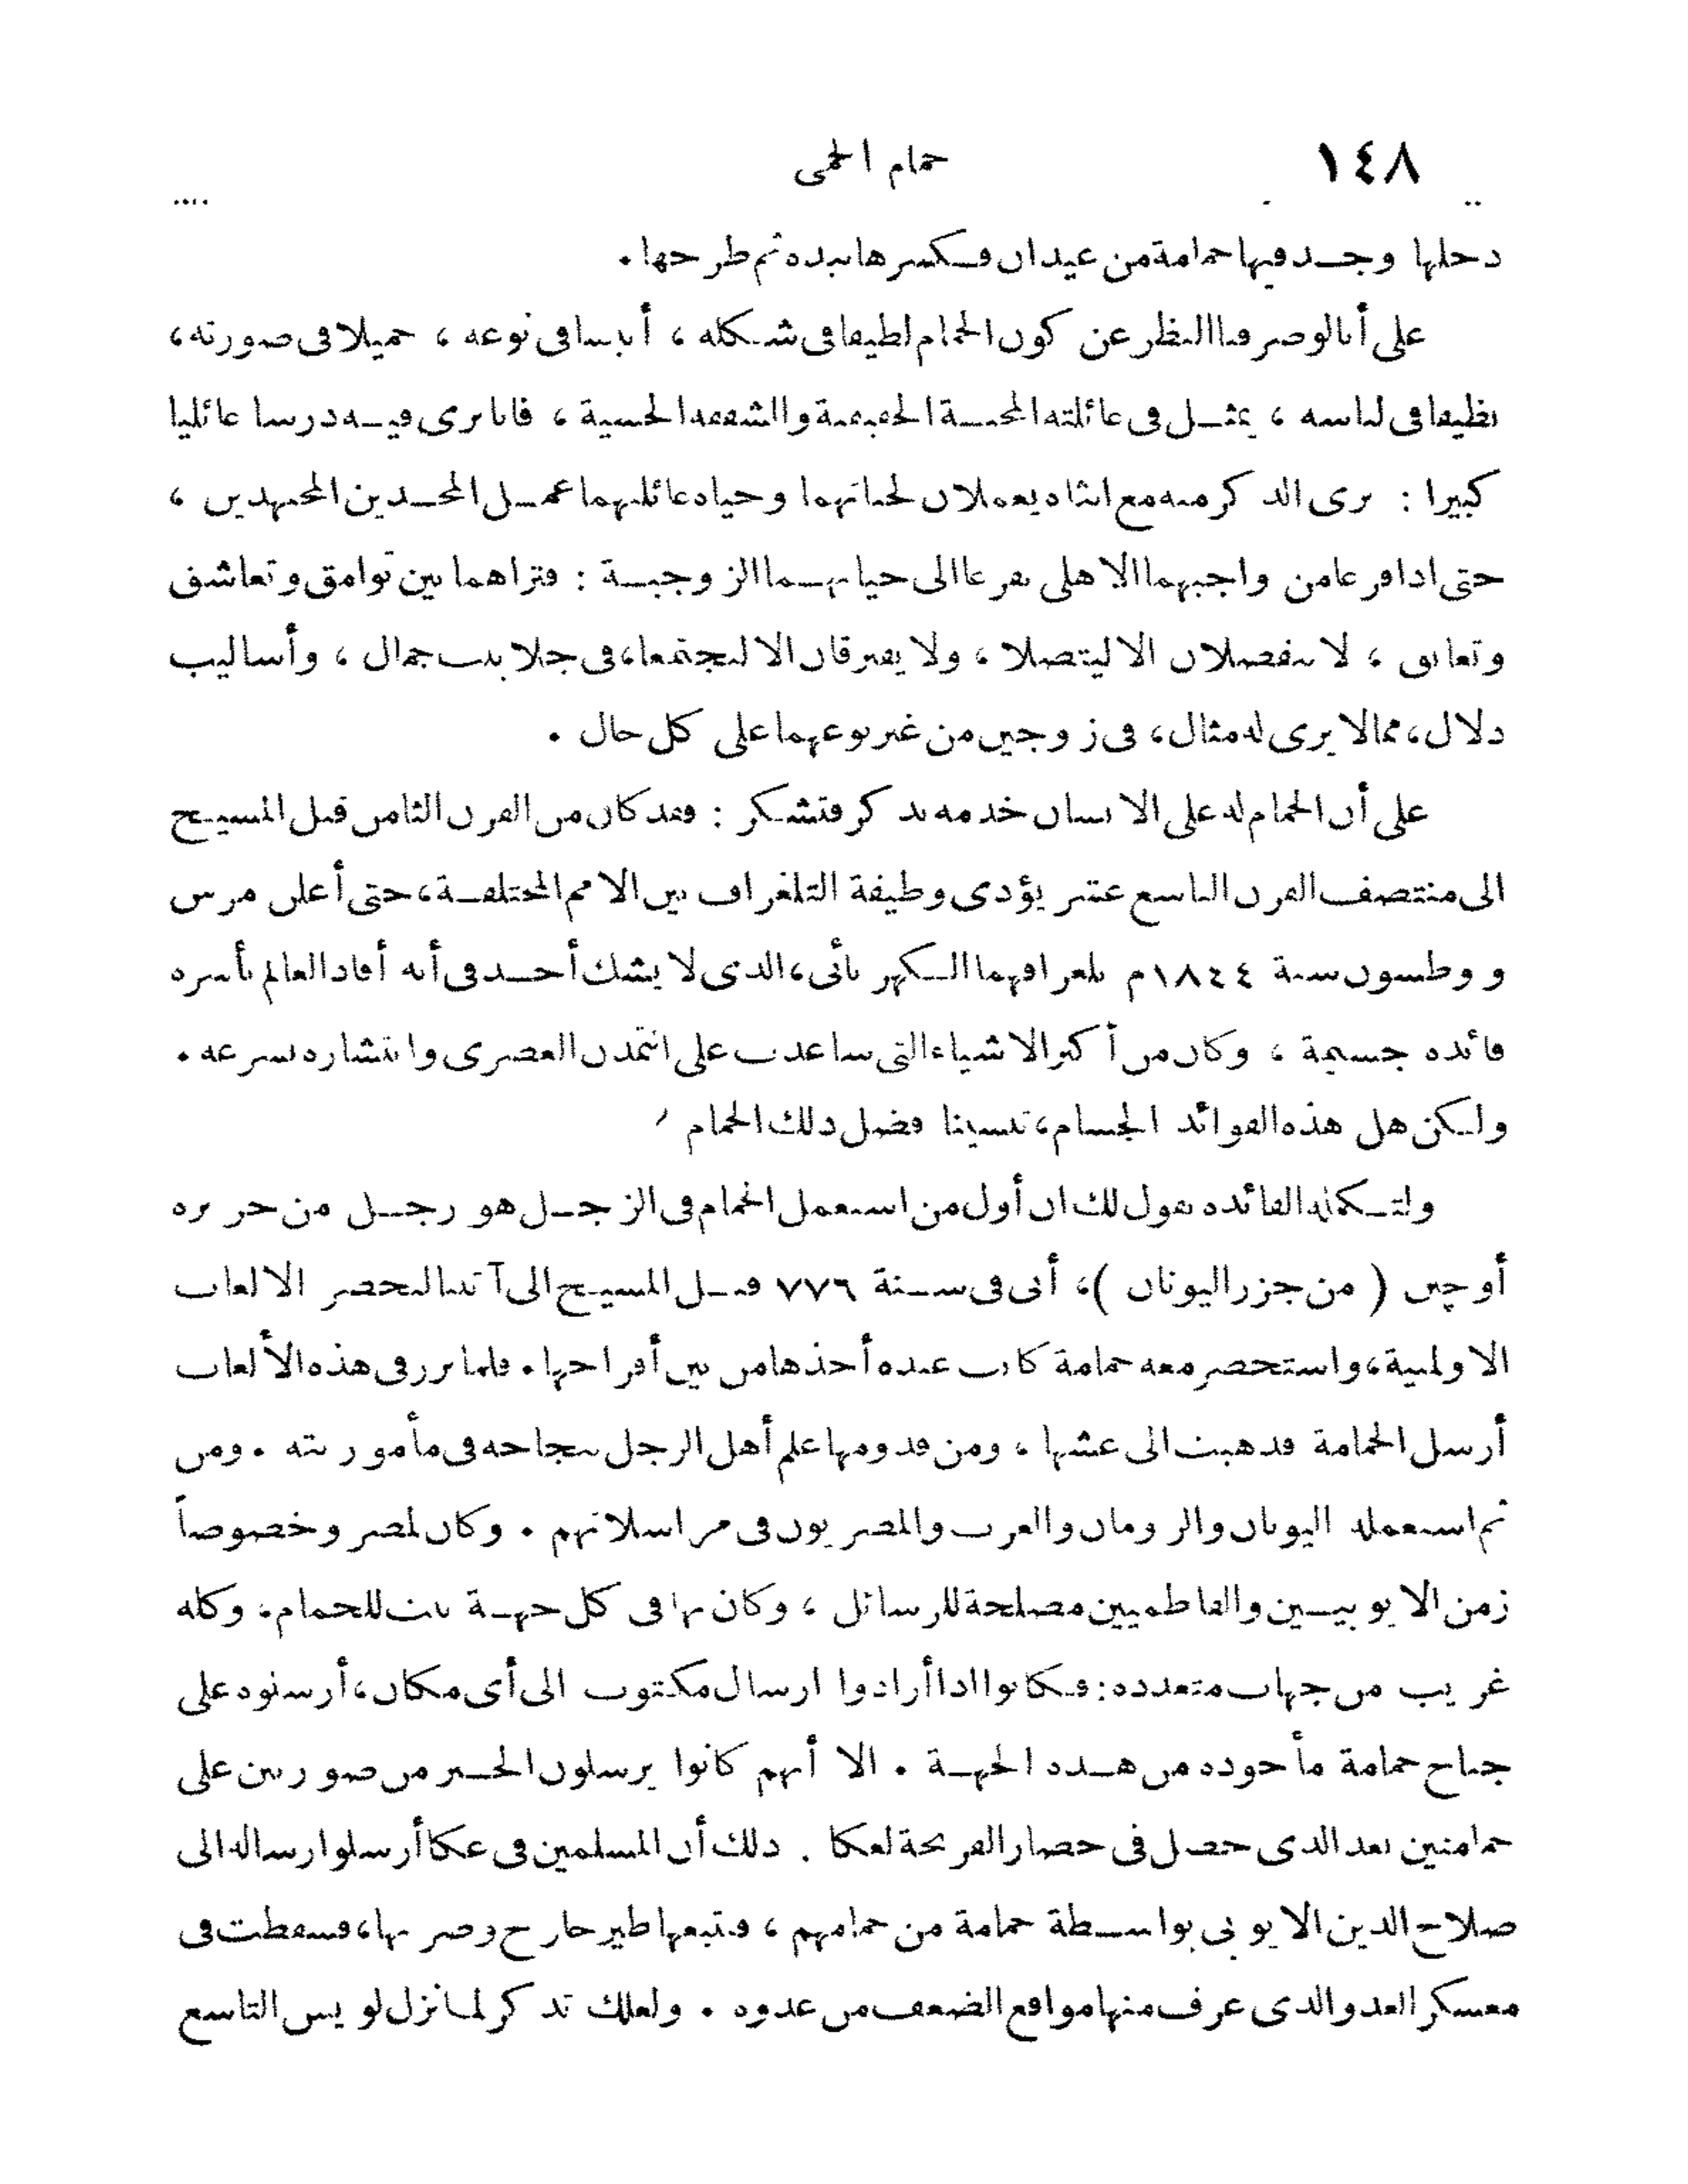 ١٤٨ حمام الحمى
دخلها وجد فيها حمامة من عيدان فكسرها بيده ثم طرحها .
على أنا لو صرفنا النظر عن كون الحمام لطيفا فى شكله ، أنيسا فى نوعه ، جميلا فى صورته ،
نظيفا فى لباسه ، يمثل فى عائلته المحبة الحقيقية والشفقة الحسية ، فانا نرى فيه درسا عائليا
كبيرا : نرى الذكر منه مع انثاه يعملان لحياتهما وحياة عائلتهما عمل المجدين المجتهدين ،
حتى اذا فرغا من واجبهما الاهلى تفرغا الى حياتهما الزوجية : فتراهما بين توامق وتعاشق
وتعانق ، لا ينفصلان الا ليتصلا ، ولا يفترقان الا ليجتمعا ، فى جلابيب جمال ، وأساليب
دلال ، مما لا يرى له مثال ، فى زوجين من غير نوعهما على كل حال .
على أن الحمام له على الانسان خدمة تذكر فتشكر : فقد كان من القرن الثامن قبل المسيح
الى منتصف القرن التاسع عشر يؤدى وظيفة التلغراف بين الامم المختلفة ، حتى أعلن مرس
ووطسون سنة ١٨٤٤ م تلغرافهما الكهربائى ، الذى لا يشك أحد فى أنه أفاد العالم بأسره
فائدة جسيمة ، وكان من أكبر الاشياء التى ساعدت على التمدن العصرى وانتشاره بسرعة .
ولكن هل هذه الفوائد الجسام ، تنسينا فضل ذلك الحمام ؟
ولتكملة الفائدة نقول لك ان أول من استعمل الحمام فى الزجل هو رجل من جزيرة
أوجين ( من جزر اليونان ) ، أتى فى سنة ٧٧٦ قبل المسيح الى آتينا ليحضر الالعاب
الاولمبية ، واستحضر معه حمامة كانت عنده أخذها من بين أفراخها . فلما برز فى هذه الألعاب
أرسل الحمامة فذهبت الى عشها ، ومن قدومها علم أهل الرجل بنجاحه فى مأموريته . ومن
ثم استعمله اليونان والرومان والعرب والمصريون فى مراسلاتهم . وكان لمصر وخصوصاً
زمن الايوبيين والفاطميين مصلحة للرسائل ، وكان بها فى كل جهة بيت للحمام ، وكله
غريب من جهات متعددة : فكانوا اذا أرادوا ارسال مكتوب الى أى مكان ، أرسلوه على
جناح حمامة مأخوذة من هذه الجهة . الا أنهم كانوا يرسلون الخبر من صورتين على
حمامتين بعد الذى حصل فى حصار الفرنجة لعكا . ذلك أن المسلمين فى عكا أرسلوا رسالة الى
صلاح الدين الايوبى بواسطة حمامة من حمامهم ، فتبعها طير جارح وضربها ، فسقطت فى
معسكر العدو الذى عرف منها مواقع الضعف من عدوه . ولعلك تذكر لما نزل لويس التاسع